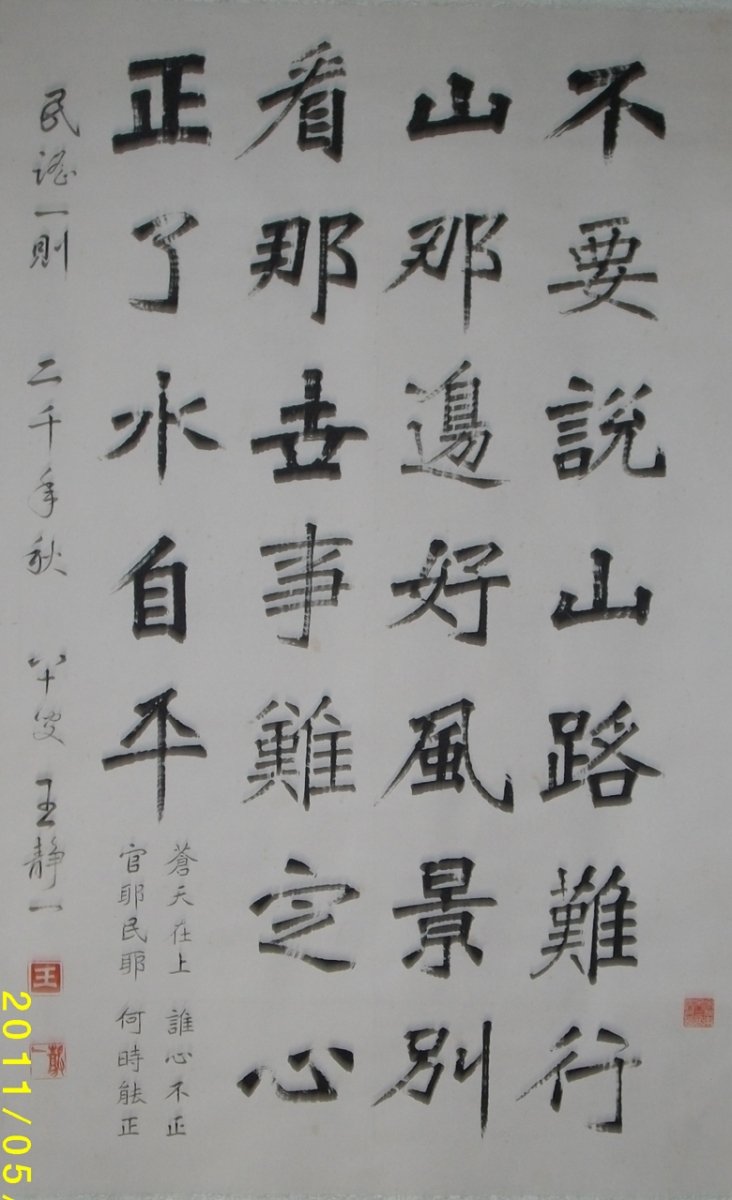 不要說山路難行
山那邊好風景別
看那世事難定心
正了水自平
蒼天在上 誰心不正
官耶民耶 何時能正
民謠一則 二千年秋 八十叟 王靜一
王
靜一
2011/05/